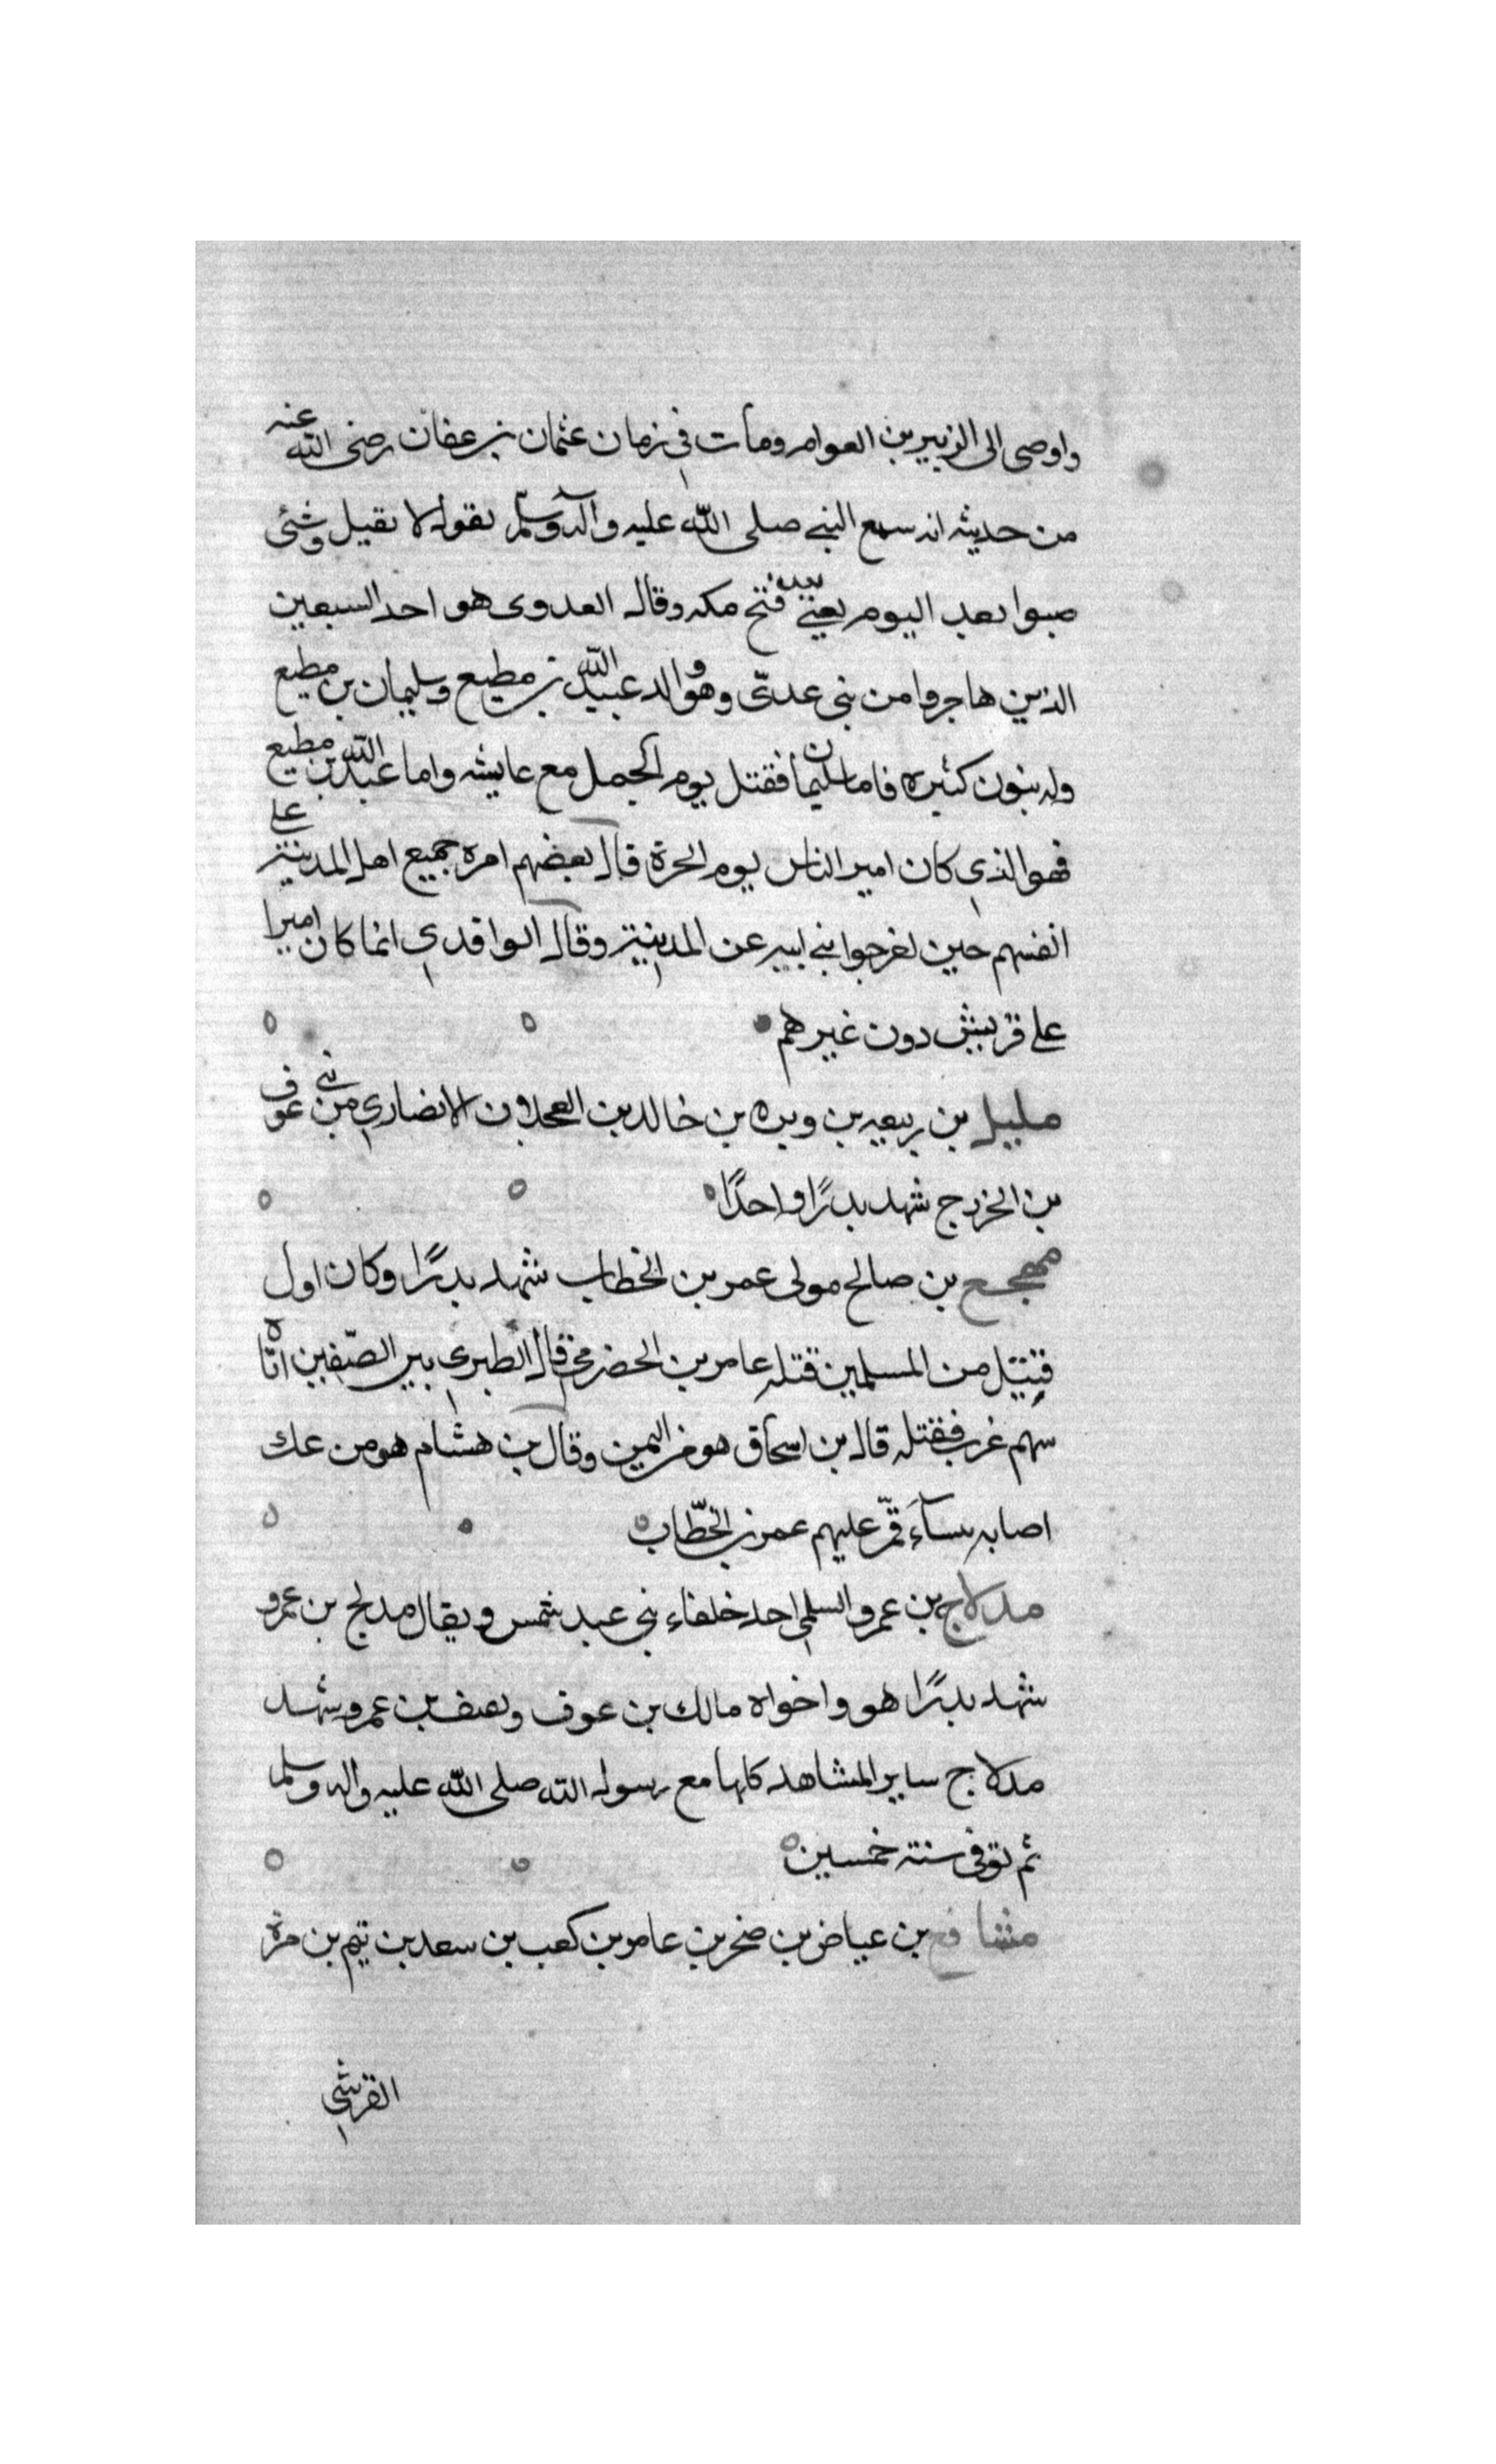 واوصى الى الزبير بن العوام ومات في زمان عثمان بن عفان رضى الله عنه
من حديثه انه سمع النبي صلى الله عليه وآله وسلم يقول لا يقيل وشئ
صبوا بعد اليوم يعني فتح مكه وقال العدوى هو احد السبعين
الذين هاجروا من بنى عدىّ وهو والد عبد الله بن مطيع وسليمان بن مطيع
وله بنون كثيره فاما سليمان فقتل يوم الجمل مع عايشه واما عبد الله بن مطيع
فهو الذي كان امير الناس يوم الحرة قال بعضهم امره جميع اهل المدينة على
انفسهم حين اخرجوا بنى اميه عن المدينة وقال الواقدي انما كان اميرا
على قريش دون غيرهم
مليل بن ربيعه بن وبره بن خالد بن العجلان الانصاري من بني عوف
بن الخزرج شهد بدرًا واحدًا
مهجع بن صالح مولى عمر بن الخطاب شهد بدرًا وكان اول
قتيل من المسلمين قتله عامر بن الحضرمي قال الطبري بين الصّفين اتاه
سهم غرب فقتله قال بن اسحاق هو من اليمن وقال بن هشام هو من عك
اصابه سبآء فمّر عليهم عمر بن الخطّاب
مدلاج بن عمرو السلمي احد خلفاء بنى عبد شمس ويقال مدلج بن عمرو
شهد بدرًا هو واخواه مالك بن عوف وبصف بن عمرو شهد
مدلاج ساير المشاهد كلها مع رسول الله صلى الله عليه واله وسلم
ثم توفى سنة خمسين
مشافع بن عياض بن صخر بن عامر بن كعب بن سعد بن تيم بن مرة
القرشي